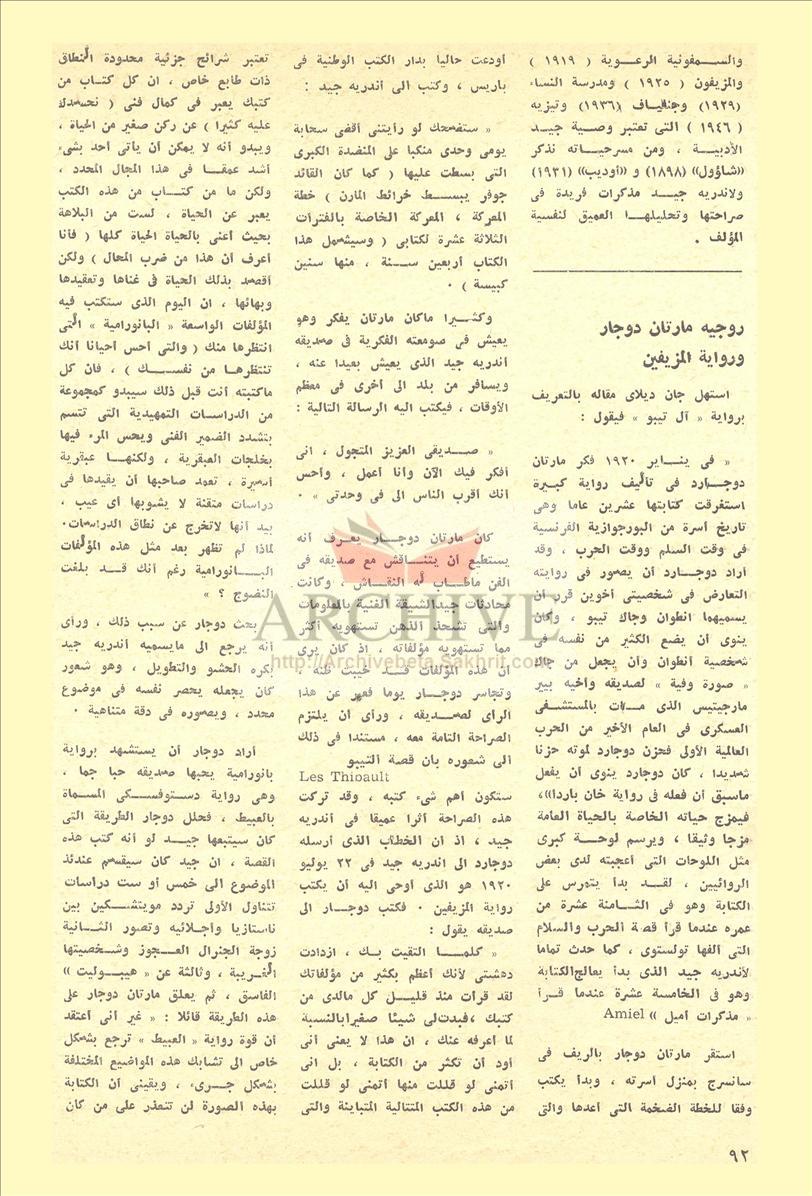 والسمفونية الرعوية ( ١٩١٩ )
والمزيفون ( ١٩٢٥ ) ومدرسة النساء
(١٩٢٩) وجنفياف (١٩٣٦) وتيزيه
( ١٩٤٦ ) التى تعتبر وصية جيد
الأدبية ، ومن مسرحياته نذكر
«شاؤول» (١٨٩٨) و «أوديب» (١٩٣١)
ولاندريه جيد مذكرات فريدة فى
صراحتها وتحليلها العميق لنفسية
المؤلف .
روجيه مارتان دوجار
ورواية المزيفين
استهل جان ديلاى مقاله بالتعريف
برواية « آل تيبو » فيقول :
« فى يناير ١٩٢٠ فكر مارتان
دوجارد فى تأليف رواية كبيرة
استغرقت كتابتها عشرين عاما وهى
تاريخ أسرة من البورجوازية الفرنسية
فى وقت السلم ووقت الحرب ، وقد
أراد دوجارد أن يصور فى روايته
التعارض فى شخصيتى أخوين قرر أن
يسميهما انطوان وجاك تيبو ، وكان
ينوى أن يضع الكثير من نفسه فى
شخصية أنطوان وأن يجعل من جاك
« صورة وفية » لصديقه وأخيه بيير
مارجيتيس الذى مات بالمستشفى
العسكرى فى العام الأخير من الحرب
العالمية الأولى فحزن دوجارد لموته حزنا
شديدا ، كان دوجارد ينوى أن يفعل
ماسبق أن فعله فى رواية خان باردا»،
فيمزج حياته الخاصة بالحياة العامة
مزجا وثيقا ، ويرسم لوحة كبرى
مثل اللوحات التى أعجبته لدى بعض
الروائيين ، لقد بدأ يتمرس على
الكتابة وهو فى الثامنة عشرة من
عمره عندما قرأ قصة الحرب والسلام
التى ألفها تولستوى ، كما حدث تماما
لأندريه جيد الذى بدأ يعالج الكتابة
وهو فى الخامسة عشرة عندما قرأ
« مذكرات أميل » Amiel
استقر مارتان دوجار بالريف فى
سانسرج بمنزل أسرته ، وبدأ يكتب
وفقا للخطة الضخمة التى أعدها والتى
أودعت حاليا بدار الكتب الوطنية فى
باريس ، وكتب الى أندريه جيد :
« ستضحك لو رأيتنى أقضى سحابة
يومى وحدى منكبا على المنضدة الكبرى
التى بسطت عليها ( كما كان القائد
جوفر يبسط خرائط المارن ) خطة
المعركة ، المعركة الخاصة بالفترات
الثلاثة عشرة لكتابى ( وسيشمل هذا
الكتاب أربعين سنة ، منها سنين
كبيسة ) .
وكثيرا ماكان مارتان يفكر وهو
يعيش فى صومعته الفكرية فى صديقه
أندريه جيد الذى يعيش بعيدا عنه ،
ويسافر من بلد الى أخرى فى معظم
الأوقات ، فيكتب اليه الرسالة التالية :
« صديقى العزيز المتجول ، انى
أفكر فيك الآن وأنا أعمل ، وأحس
أنك أقرب الناس الى فى وحدتى » .
كان مارتان دوجار يعرف أنه
يستطيع أن يتناقش مع صديقه فى
الفن ماطاب له النقاش ، وكانت
محادثات جيد الشيقة الغنية بالمعلومات
والتى تشحذ الذهن تستهويه أكثر
مما تستهويه مؤلفاته ، اذ كان يرى
أن هذه المؤلفات قد خيبت ظنه ،
وتجاسر دوجار يوما فعبر عن هذا
الرأى لصديقه ، ورأى أن يلتزم
الصراحة التامة معه ، مستندا فى ذلك
الى شعوره بان قصة التيبو
Les Thioault
ستكون أهم شىء كتبه ، وقد تركت
هذه الصراحة أثرا عميقا فى أندريه
جيد ، اذ ان الخطاب الذى أرسله
دوجارد الى اندريه جيد فى ٢٢ يوليو
١٩٢٠ هو الذى أوحى اليه أن يكتب
رواية المزيفين . فكتب دوجار الى
صديقه يقول :
« كلما التقيت بك ، ازدادت
دهشتى لأنك أعظم بكثير من مؤلفاتك
لقد قرأت منذ قليل كل مالدى من
كتبك ، فبدت لى شيئا صغيرا بالنسبة
لما أعرفه عنك ، ان هذا لا يعنى أنى
أود أن تكثر من الكتابة ، بل انى
أتمنى لو قللت منها أتمنى لو قللت
من هذه الكتب المتتالية المتباينة والتى
تعتبر شرائح جزئية محدودة النطاق
ذات طابع خاص ، ان كل كتاب من
كتبك يعبر فى كمال فنى ( نحسدك
عليه كثيرا ) عن ركن صغير من الحياة ،
ويبدو أنه لا يمكن أن يأتى أحد بشىء
أشد عمقا فى هذا المجال المحدد ،
ولكن ما من كتاب من هذه الكتب
يعبر عن الحياة ، لست من البلاهة
بحيث أعنى بالحياة الحياة كلها ( فأنا
أعرف أن هذا من ضرب المحال ) ولكن
أقصد بذلك الحياة فى غناها وتعقيدها
وبهائها ، ان اليوم الذى ستكتب فيه
المؤلفات الواسعة « البانورامية » التى
انتظرها منك ( والتى أحس أحيانا أنك
تنتظرها من نفسك ) ، فان كل
ماكتبته أنت قبل ذلك سيبدو كمجموعة
من الدراسات التمهيدية التى تتسم
بتشدد الضمير الفنى ويحس المرء فيها
بخلجات العبقرية ، ولكنها عبقرية
أسيرة ، تعمد صاحبها أن يقيدها فى
دراسات متقنة لا يشوبها أى عيب ،
بيد أنها لاتخرج عن نطاق الدراسات.
لماذا لم تظهر بعد مثل هذه المؤلفات
البانورامية رغم أنك قد بلغت
النضوج ؟ »
بحث دوجار عن سبب ذلك ، ورأى
أنه يرجع الى مايسميه أندريه جيد
بكره الحشو والتطويل ، وهو شعور
كان يجعله يحصر نفسه فى موضوع
محدد ، ويصوره فى دقة متناهية .
أراد دوجار أن يستشهد برواية
بانورامية يحبها صديقه حبا جما ،
وهى رواية دستوفسكى المسماة
بالعبيط ، فحلل دوجار الطريقة التى
كان سيتبعها جيد لو أنه كتب هذه
القصة ، ان جيد كان سيقسم عندئذ
الموضوع الى خمس أو ست دراسات
تتناول الأولى تردد مويتشكين بين
ناستازيا وأجلائيه وتصور الثانية
زوجة الجنرال العجوز وشخصيتها
الغريبة ، وثالثة عن « هيبوليت »
الفاسق ، ثم يعلق مارتان دوجار على
هذه الطريقة قائلا : « غير أنى أعتقد
أن قوة رواية « العبيط » ترجع بشكل
خاص الى تشابك هذه المواضيع المختلفة
بشكل جرىء ، ويقينى أن الكتابة
بهذه الصورة لن تتعذر على من كان
٩٢
ARCHIVE
http://Archivebeta.Sakhrit.com